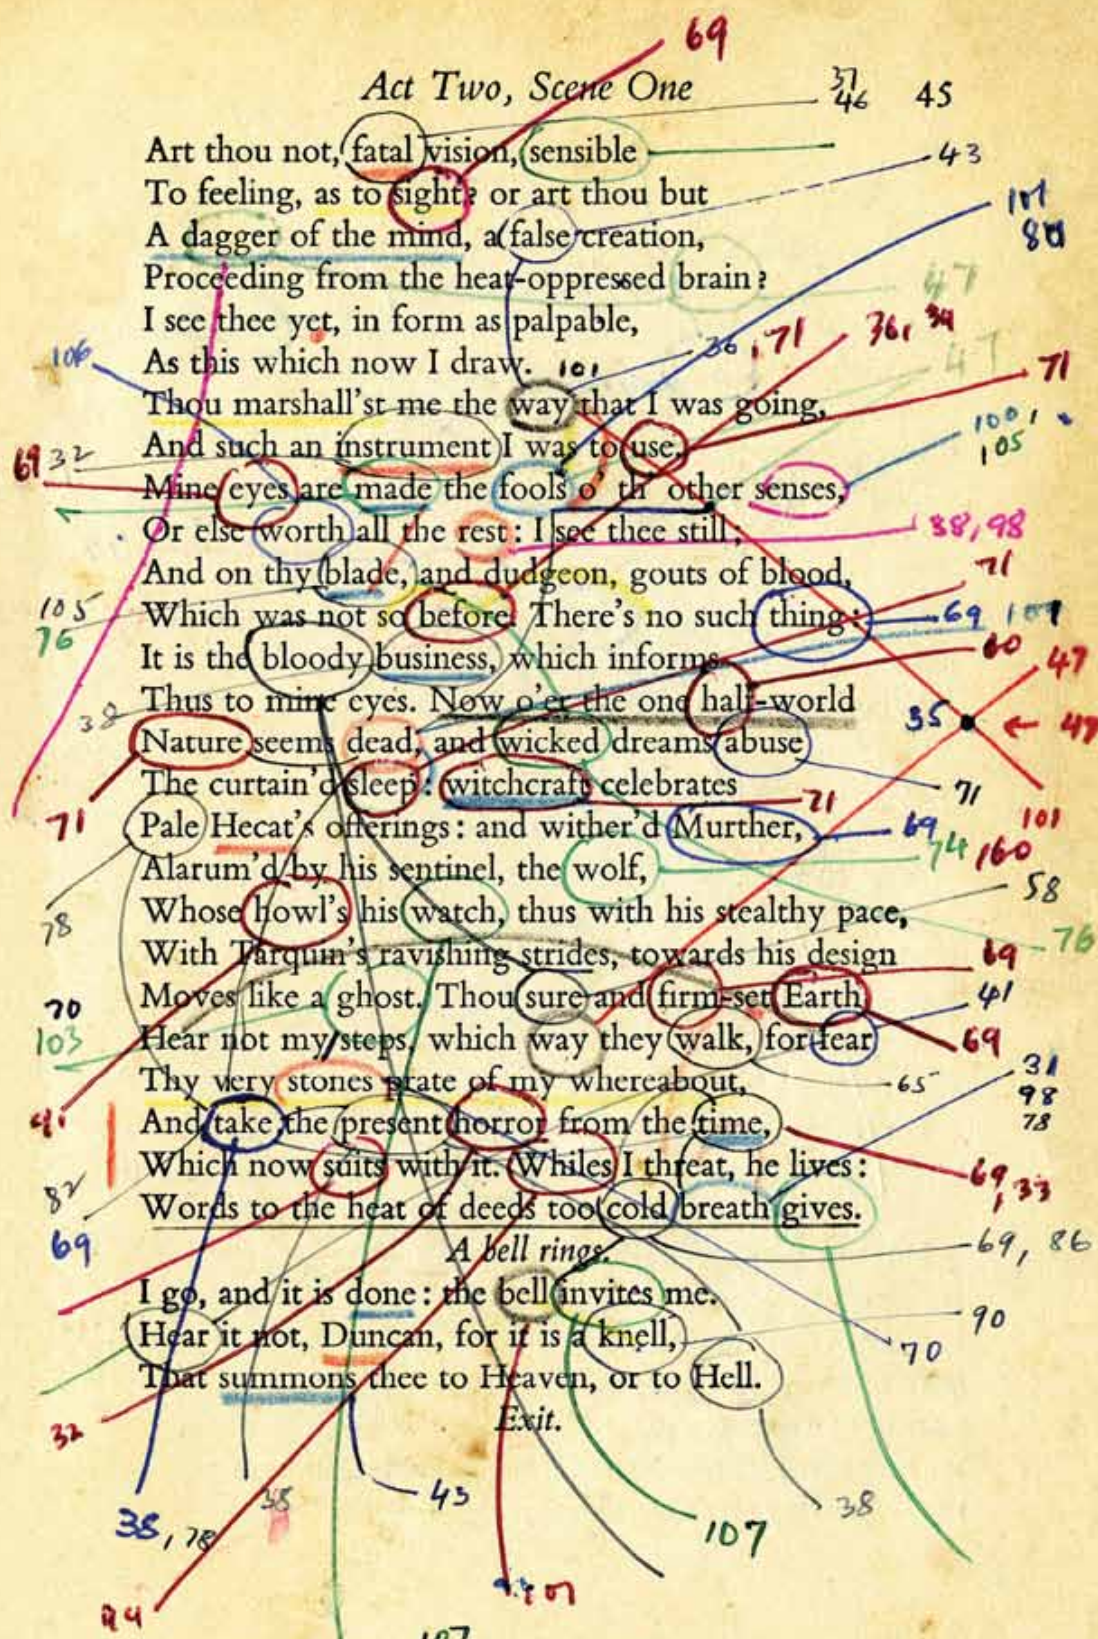 69
Act Two, Scene One 37 46 45
Art thou not, fatal vision, sensible
To feeling, as to sight? or art thou but 43
A dagger of the mind, a false creation, 101
Proceeding from the heat-oppressed brain? 47
I see thee yet, in form as palpable, 36, 71 36, 34
106 As this which now I draw. 101 47 71
Thou marshall'st me the way that I was going,
69 32 And such an instrument I was to use. 100, 105
Mine eyes are made the fools o' th' other senses,
Or else worth all the rest: I see thee still; 38, 98
And on thy blade, and dudgeon, gouts of blood, 71
105 76 Which was not so before. There's no such thing: 69 107
It is the bloody business, which informs 60 47
38 Thus to mine eyes. Now o'er the one half-world 35
Nature seems dead, and wicked dreams abuse ← 47
The curtain'd sleep: witchcraft celebrates 71 71
71 Pale Hecat's offerings: and wither'd Murther, 69 101
Alarum'd by his sentinel, the wolf, 74 160
78 Whose howl's his watch, thus with his stealthy pace, 58
With Tarquin's ravishing strides, towards his design 76 69
70 Moves like a ghost. Thou sure and firm-set Earth 41
103 Hear not my steps, which way they walk, for fear 69
Thy very stones prate of my whereabout, 65 31
41 And take the present horror from the time, 98 78
82 Which now suits with it. Whiles I threat, he lives: 69, 33
69 Words to the heat of deeds too cold breath gives.
A bell rings. 69, 86
I go, and it is done: the bell invites me. 90
Hear it not, Duncan, for it is a knell, 70
That summons thee to Heaven, or to Hell.
32 Exit.
38, 78 38 43 107 38
107